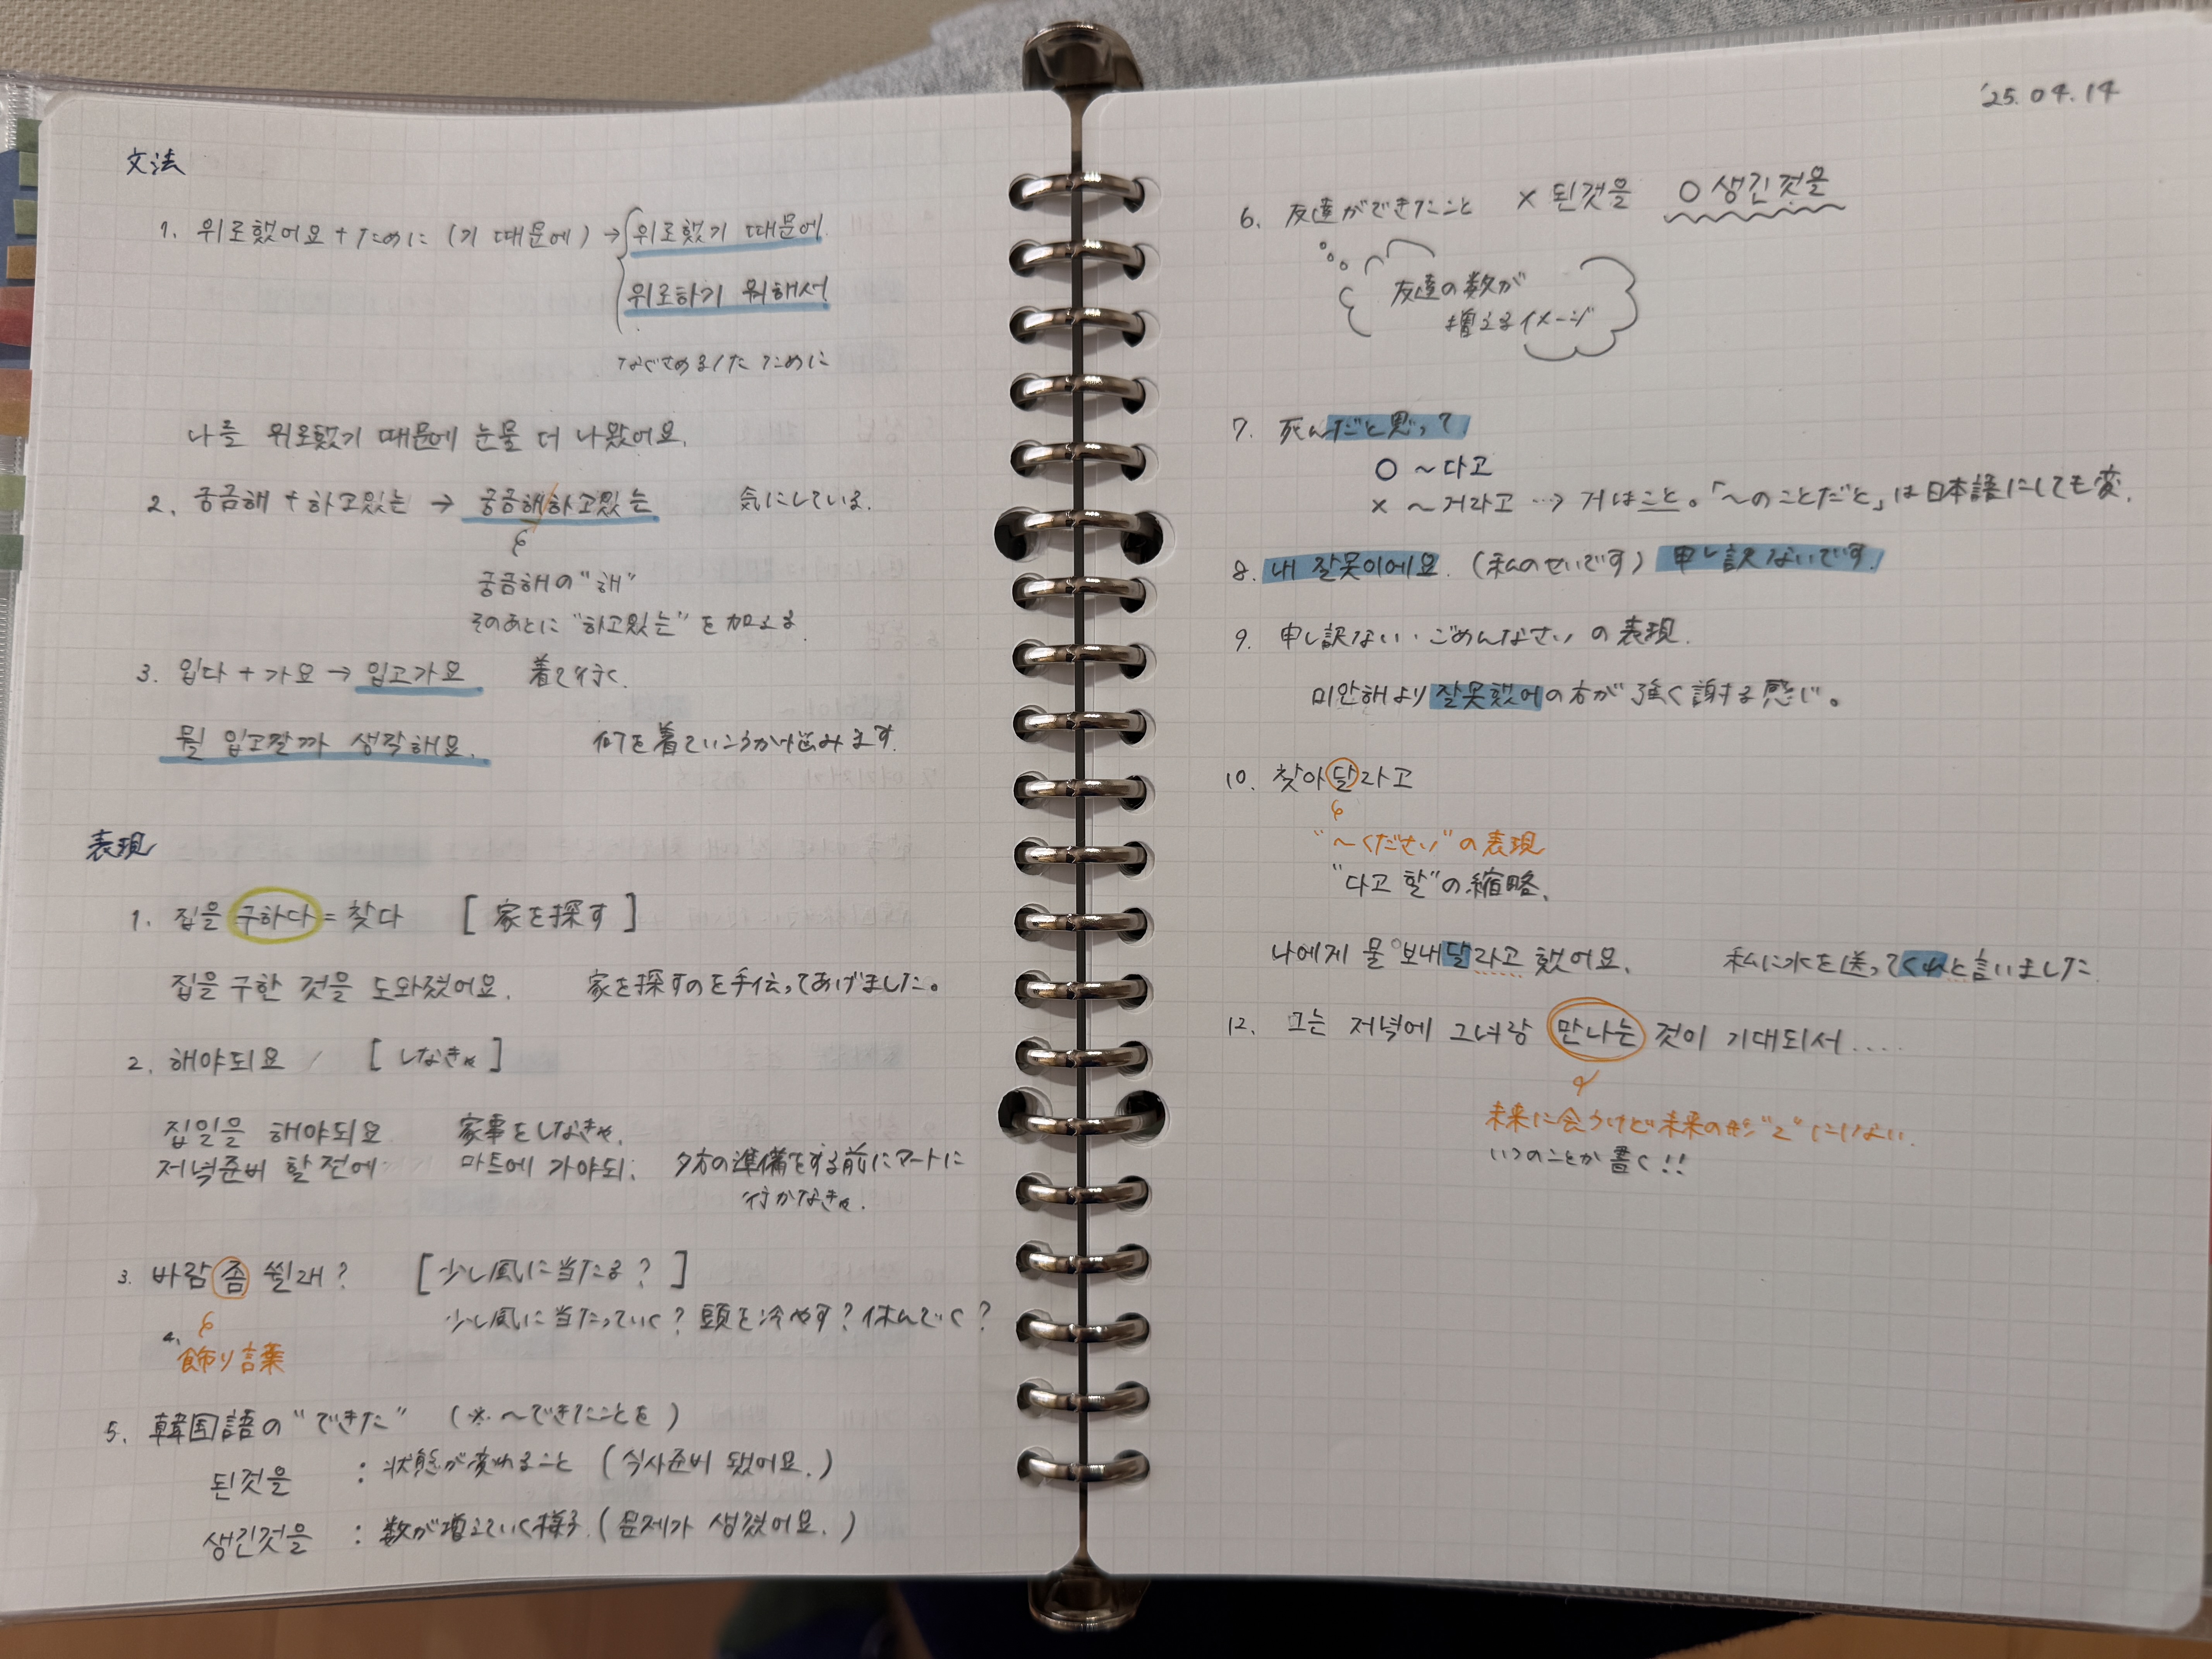 文法
1. 위로했어요 + ために (기 때문에) → 위로했기 때문에
위로하기 위해서
なぐさめる/た ために
나를 위로했기 때문에 눈물 더 나왔어요.
2. 궁금해 + 하고있는 → 궁금해하고있는 気にしている.
궁금해の"해"
そのあとに"하고있는"を加える
3. 입다 + 가요 → 입고가요 着て行く.
뭘 입고갈까 생각해요. 何を着ていこうか悩みます.
表現
1. 집을 구하다 = 찾다 [家を探す]
집을 구한 것을 도와줬어요. 家を探すのを手伝ってあげました。
2. 해야되요 / [しなきゃ]
집일을 해야되요 家事をしなきゃ.
저녁준비 할 전에 마트에 가야되. 夕方の準備をする前にマートに
行かなきゃ.
3. 바람 좀 쐴래? [少し風に当たる?]
少し風に当たっていく? 頭を冷やす? 休んでく?
4. 飾り言葉
5. 韓国語の"できた" (※ 〜できたことを)
된것을 : 状態が変わること (식사준비 됐어요.)
생긴것을 : 数が増えていく様子. (문제가 생겼어요.)
'25.04.14
6. 友達ができたこと × 된것을 ○ 생긴것을
友達の数が
増えるイメージ
7. 死んだと思って
○ 〜다고
× 〜거라고 …→ 거はこと。「〜のことだと」は日本語にしても変.
8. 내 잘못이에요. (私のせいです) 申し訳ないです.
9. 申し訳ない・ごめんなさいの表現.
미안해より잘못했어の方が強く謝る感じ。
10. 찾아달라고
"〜ください"の表現
"다고 할"の縮略.
나에게 물 보내달라고 했어요. 私に水を送ってくれと言いました.
12. 그는 저녁에 그녀랑 만나는 것이 기대되서....
未来に会うけど未来の形"ㄹ"にしない.
いつのことか書く!!